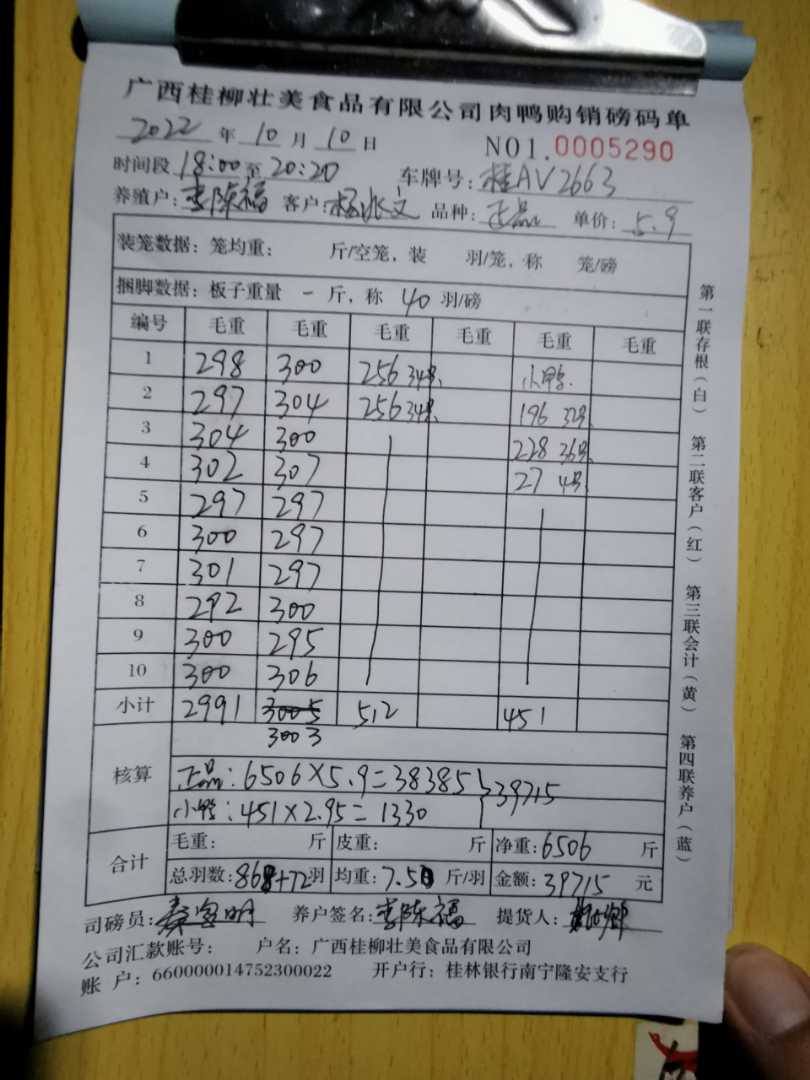 广西桂柳壮美食品有限公司肉鸭购销磅码单
2022 年 10 月 10 日 NO1.0005290
时间段 18:00 至 20:20 车牌号：桂AV2663
养殖户：李陈福 客户：杨 文 品种：正品 单价：5.9
装笼数据：笼均重： 斤/空笼，装 羽/笼，称 笼/磅
捆脚数据：板子重量 一 斤，称 40 羽/磅
编号 毛重 毛重 毛重 毛重 毛重 毛重
1 298 300 256 34只 小鸭
2 297 304 256 34只 196 32只
3 304 300 228 36只
4 302 307 27 4只
5 297 297
6 300 297
7 301 297
8 292 300
9 300 295
10 300 306
小计 2991 3005 512 451
3003
核算
正品：6506×5.9=38385 } 39715
小鸭：451×2.95=1330
合计 毛重： 斤 皮重： 斤 净重：6506 斤
总羽数：868+72 羽 均重：7.50 斤/羽 金额：39715 元
司磅员： 明 养户签名：李陈福 提货人：
公司汇款账号： 户名：广西桂柳壮美食品有限公司
账 户：660000014752300022 开户行：桂林银行南宁隆安支行
第一联存根（白） 第二联客户（红） 第三联会计（黄） 第四联养户（蓝）